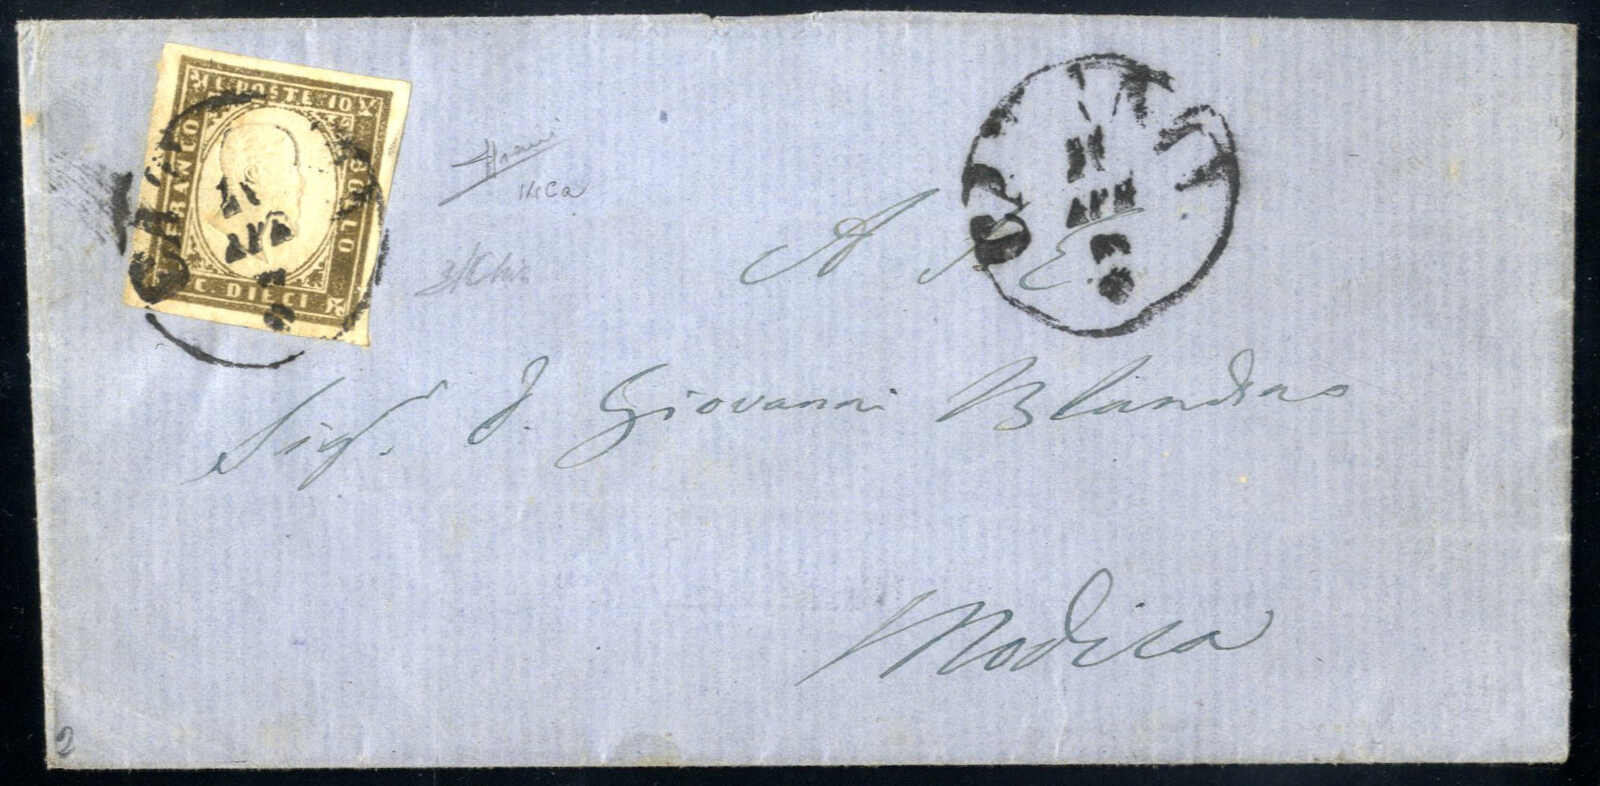 C. POSTE 10
FRANCO
BOLLO
C. DIECI
11
APR
63
11
APR
63
14Ca
A S. E.
Sigr. D. Giovanni Blandino
Modica
2